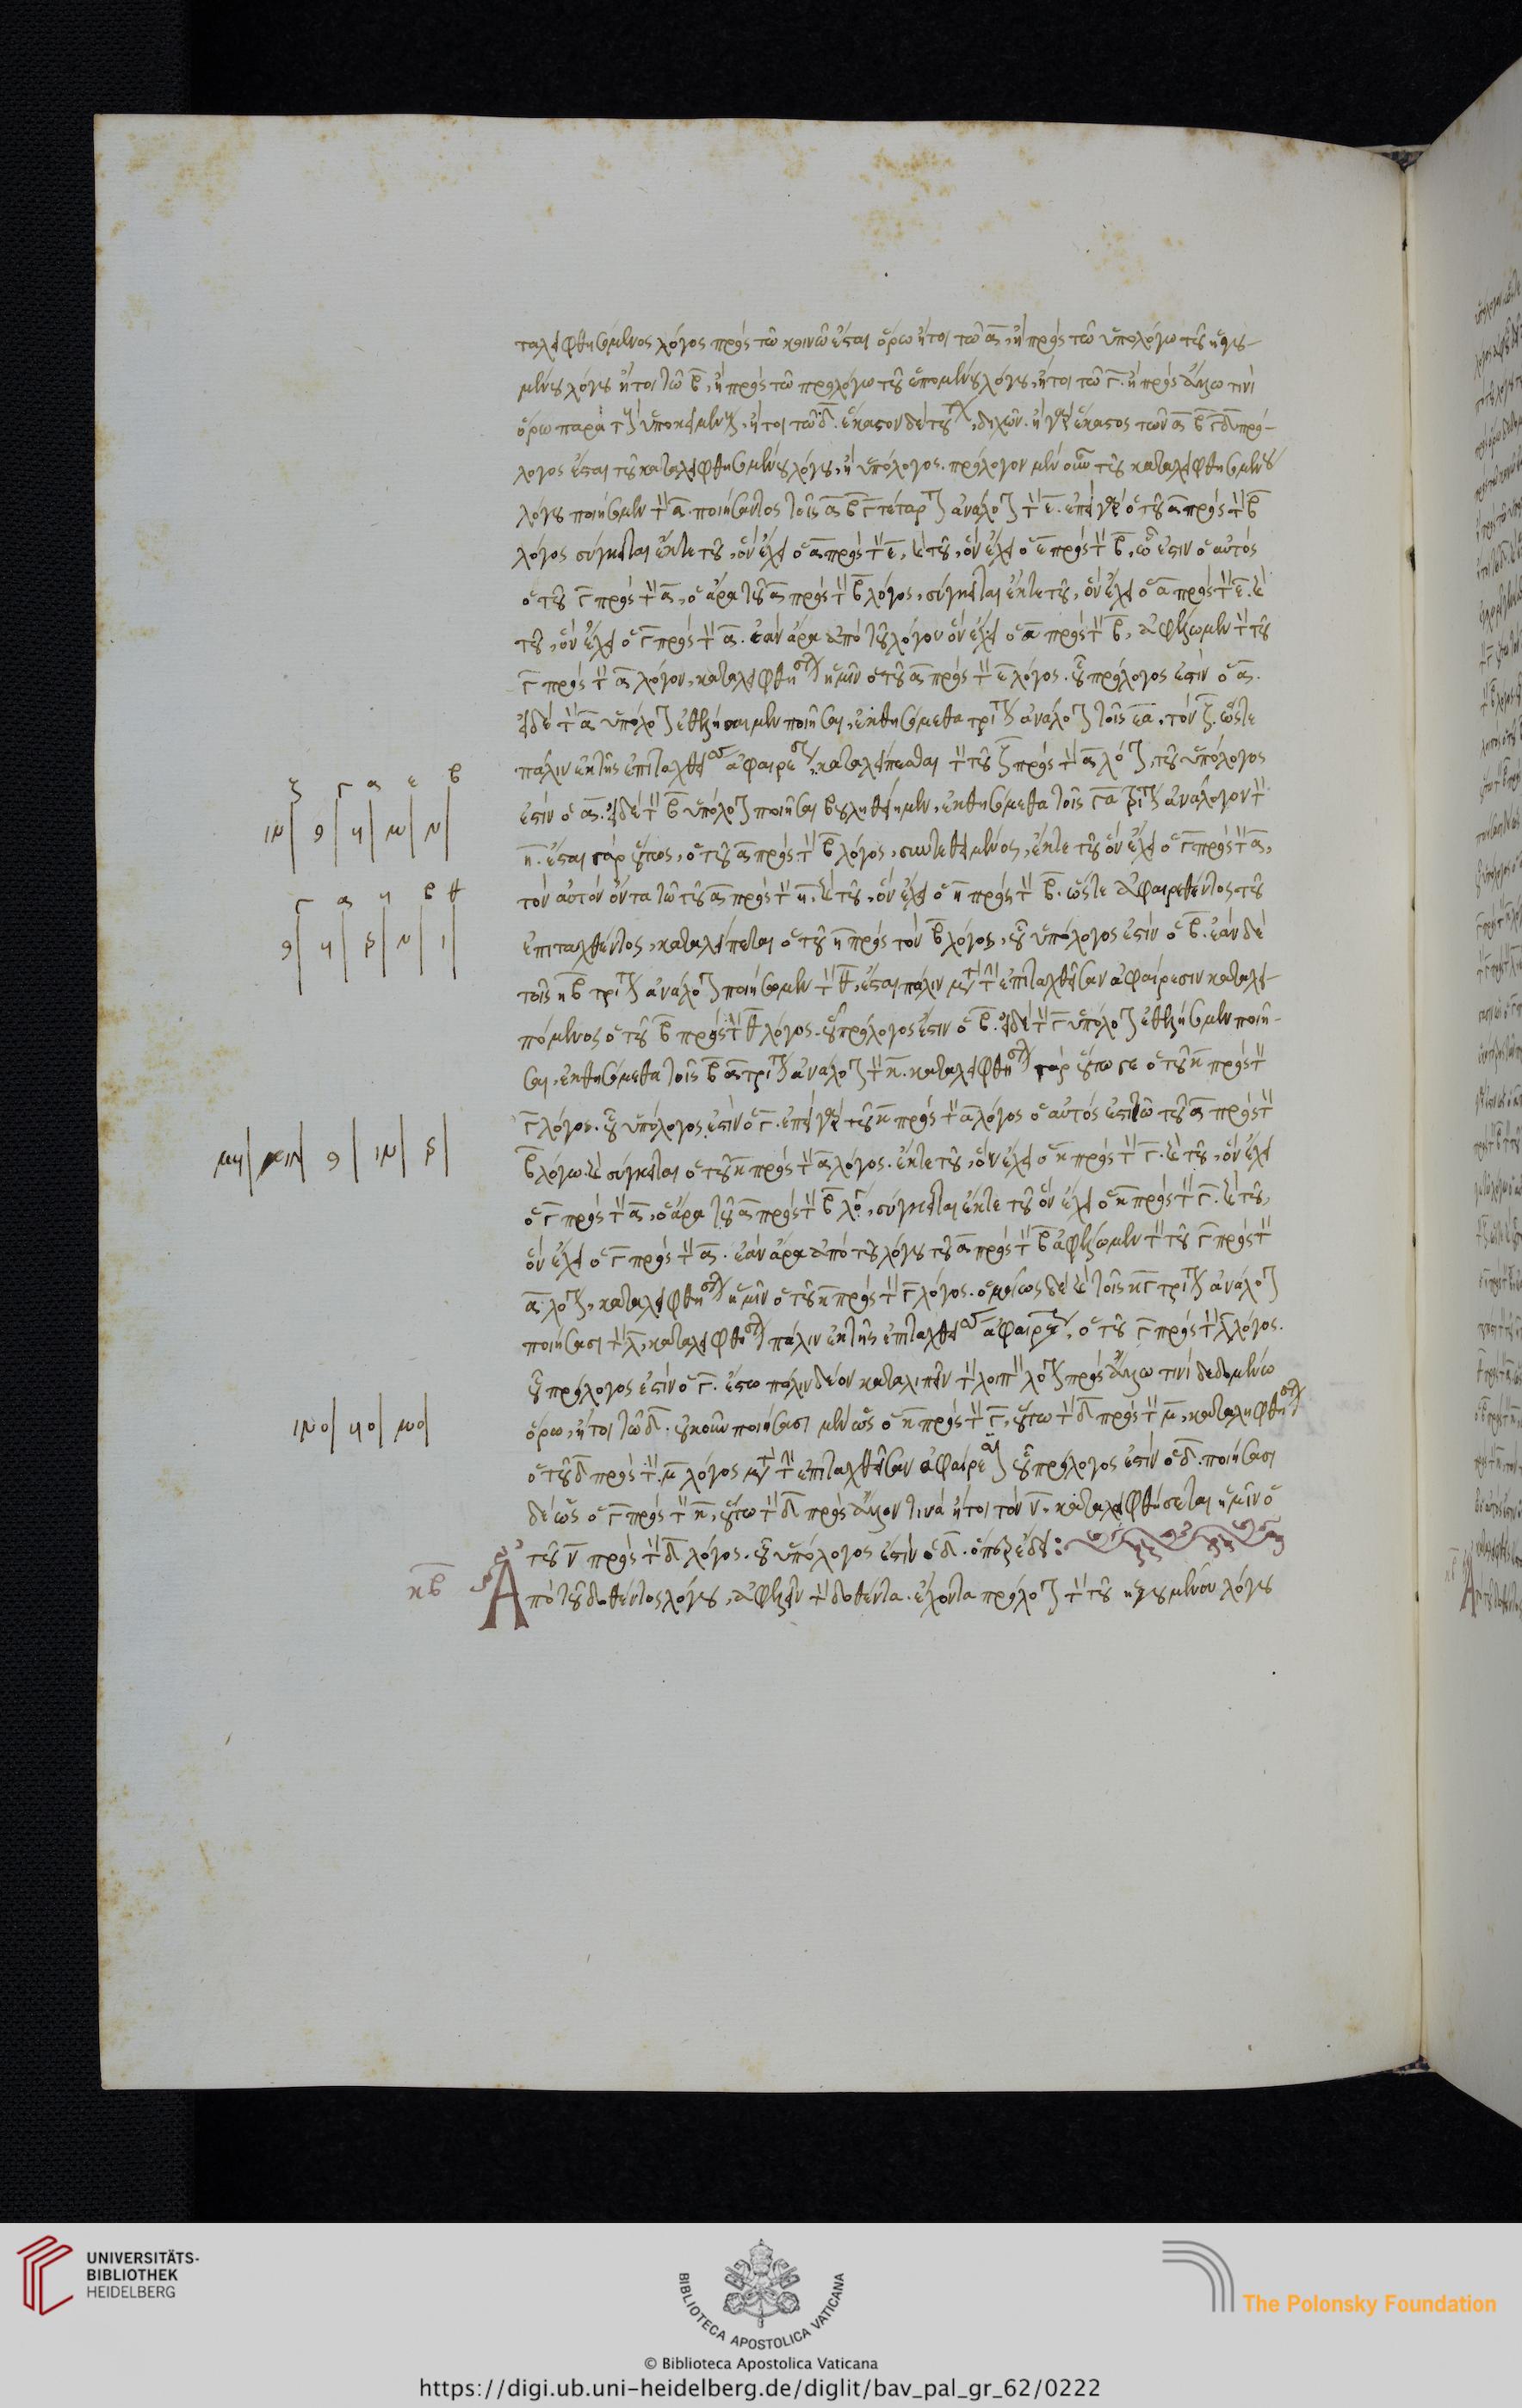 ταλειφθησόμενος λόγος πρὸς τῶ κοινῶ ἔσται ὅρω ἤτοι τῶ α, ἢ πρὸς τῶ ὑπολόγω τοῦ ἡγου-
μένου λόγου ἤτοι τῶ β, ἢ πρὸς τῶ προλόγω τοῦ ἑπομένου λόγου, ἤτοι τῶ γ. ἢ πρὸς ἄλλω τινὶ
ὅρω παρὰ τοὺς ὑποκειμένους, ἤτοι τῶ δ. ἕκαστον δὲ τούτων, διχῶς. ἢ γὰρ ἕκαστος τῶν α β γ δ πρό-
λογος ἔσται τοῦ καταλειφθησομένου λόγου, ἢ ὑπόλογος. πρόλογον μὲν οὖν τοῦ καταλειφθησομένου
λόγου ποιήσομεν τὸν α. ποιήσαντες τοῖς α β γ τέταρτον ἀνάλογον τὸν ε. ἐπεὶ γὰρ ὁ τοῦ α πρὸς τὸν β
λόγος σύγκειται ἔκ τε τοῦ, ὃν ἔχει ὁ α πρὸς τὸν ε, καὶ τοῦ, ὃν ἔχει ὁ ε πρὸς τὸν β, ὧ ἐστιν ὁ αὐτὸς
ὁ τοῦ γ πρὸς τὸν α, ὁ ἄρα τοῦ α πρὸς τὸν β λόγος, σύγκειται ἔκ τε τοῦ, ὃν ἔχει ὁ α πρὸς τὸν ε. καὶ
τοῦ, ὃν ἔχει ὁ γ πρὸς τὸν α. ἐὰν ἄρα ἀπὸ τοῦ λόγου ὃν ἔχει ὁ α πρὸς τὸν β, ἀφέλωμεν τὸν τοῦ
γ πρὸς τὸν α λόγον, καταλειφθήσεται ἡμῖν ὁ τοῦ α πρὸς τὸν ε λόγος. οὗ πρόλογος ἐστὶν ὁ α.
εἰ δὲ τὸν α ὑπόλογον ἐθελήσαιμεν ποιῆσαι, ἐκθησόμεθα τρίτον ἀνάλογον τοῖς ε α, τὸν ζ. ὥστε
πάλιν ἐκ τῆς ἐπιταχθείσης ἀφαιρέσεως, καταλείπεσθαι τὸν τοῦ ζ πρὸς τὸν α λόγον, οὗ ὑπόλογος
ἐστὶν ὁ α. εἰ δὲ τὸν β ὑπόλογον ποιῆσαι βουληθείημεν, ἐκθησόμεθα τοῖς γ α τρίτον ἀνάλογον τὸν
η. ἔσται γὰρ οὕτως, ὁ τοῦ α πρὸς τὸν β λόγος, συντεθειμένος, ἔκ τε τοῦ ὃν ἔχει ὁ γ πρὸς τὸν α,
τὸν αὐτὸν ὄντα τῶ τοῦ α πρὸς τὸν η. καὶ τοῦ, ὃν ἔχει ὁ η πρὸς τὸν β. ὥστε ἀφαιρεθέντος τοῦ
ἐπιταχθέντος, καταλείπεται ὁ τοῦ η πρὸς τὸν β λόγος, οὗ ὑπόλογος ἐστὶν ὁ β. ἐὰν δὲ
τοῖς η β τρίτον ἀνάλογον ποιήσωμεν τὸν θ, ἔσται πάλιν μετὰ τὴν ἐπιταχθεῖσαν ἀφαίρεσιν καταλει-
πόμενος ὁ τοῦ β πρὸς τὸν θ λόγος. οὗ πρόλογος ἐστὶν ὁ β. εἰ δὲ τὸν γ ὑπόλογον ἐθελήσομεν ποιῆ-
σαι, ἐκθησόμεθα τοῖς β α τρίτον ἀνάλογον τὸν κ. καταλειφθήσεται γὰρ οὕτω γε ὁ τοῦ κ πρὸς τὸν
γ λόγος. οὗ ὑπόλογος ἐστὶν ὁ γ. ἐπεὶ γὰρ τοῦ κ πρὸς τὸν α λόγος ὁ αὐτός ἐστι τῶ τοῦ α πρὸς τὸν
β λόγω. καὶ σύγκειται ὁ τοῦ κ πρὸς τὸν α λόγος. ἔκ τε τοῦ, ὃν ἔχει ὁ κ πρὸς τὸν γ. καὶ τοῦ, ὃν ἔχει
ὁ γ πρὸς τὸν α, ὁ ἄρα τοῦ α πρὸς τὸν β λόγος, σύγκειται ἔκ τε τοῦ ὃν ἔχει ὁ κ πρὸς τὸν γ. καὶ τοῦ,
ὃν ἔχει ὁ γ πρὸς τὸν α. ἐὰν ἄρα ἀπὸ τοῦ λόγου τοῦ α πρὸς τὸν β ἀφέλωμεν τὸν τοῦ γ πρὸς τὸν
α λόγον, καταλειφθήσεται ἡμῖν ὁ τοῦ κ πρὸς τὸν γ λόγος. ὁμοίως δὲ καὶ τοῖς κ γ τρίτον ἀνάλογον
ποιήσασι τὸν λ, καταλειφθήσεται πάλιν ἐκ τῆς ἐπιταχθείσης ἀφαιρέσεως, ὁ τοῦ γ πρὸς τὸν λ λόγος.
οὗ πρόλογος ἐστὶν ὁ γ. ἔστω πάλιν δέον καταλιπεῖν τὸν λοιπὸν λόγον πρὸς ἄλλω τινὶ δεδομένω
ὅρω, ἤτοι τῶ δ. οὐκοῦν ποιήσασι μὲν ὡς ὁ κ πρὸς τὸν γ, οὕτω τὸν δ πρὸς τὸν μ, καταληφθήσεται
ὁ τοῦ δ πρὸς τὸν μ λόγος μετὰ τὴν ἐπιταχθεῖσαν ἀφαίρεσιν οὗ πρόλογος ἐστὶν ὁ δ. ποιήσασι
δὲ ὡς ὁ γ πρὸς τὸν κ, οὕτω τὸν δ πρὸς ἄλλον τινὰ ἤτοι τὸν ν, καταλειφθήσεται ἡμῖν ὁ
τοῦ ν πρὸς τὸν δ λόγος. οὗ ὑπόλογος ἐστὶν ὁ δ. ὅπερ ἔδει:
κβ Ἀπὸ τοῦ δοθέντος λόγου, ἀφελεῖν τὸν δοθέντα. ἔχοντα πρόλογον τὸν τοῦ ἡγουμένου λόγου
ζ γ α ε β
γ α η β θ
UNIVERSITÄTS-
BIBLIOTHEK
HEIDELBERG
BIBLIOTECA APOSTOLICA VATICANA
The Polonsky Foundation
© Biblioteca Apostolica Vaticana
https://digi.ub.uni-heidelberg.de/diglit/bav_pal_gr_62/0222